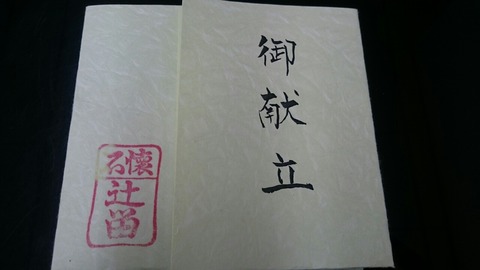 御献立
懐石
辻留